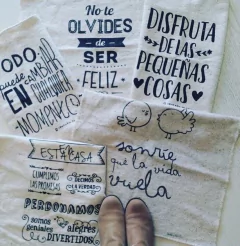 TODO
puede
CAMBIAR
EN
CUALQUIER
MOMENTO
No te
OLVIDES
de
SER
FELIZ
DISFRUTA
DE LAS
PEQUEÑAS
COSAS
EN
ESTA CASA
CUMPLIMOS
LAS PROMESAS
DECIMOS
LA VERDAD
PERDONAMOS
somos
geniales
alegres
DIVERTIDOS
sonríe
que la vida
vuela